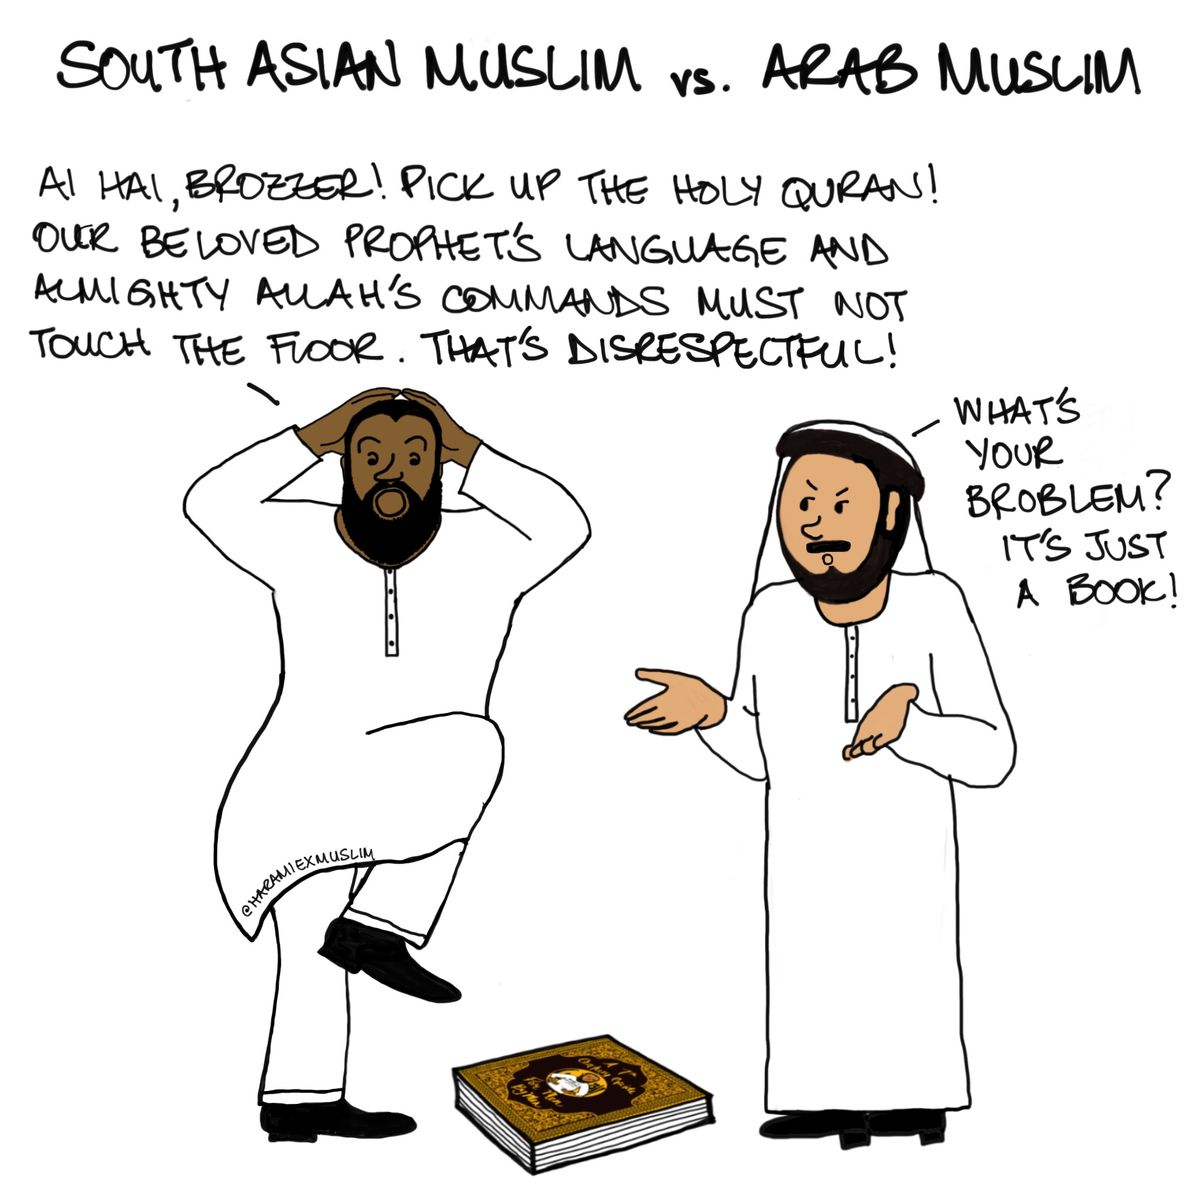 SOUTH ASIAN MUSLIM vs. ARAB MUSLIM
AI HAI, BROZZER! PICK UP THE HOLY QURAN!
OUR BELOVED PROPHET'S LANGUAGE AND
ALMIGHTY ALLAH'S COMMANDS MUST NOT
TOUCH THE FLOOR. THAT'S DISRESPECTFUL!
WHAT'S
YOUR
BROBLEM?
IT'S JUST
A BOOK!
@HARAMIEXMUSLIM